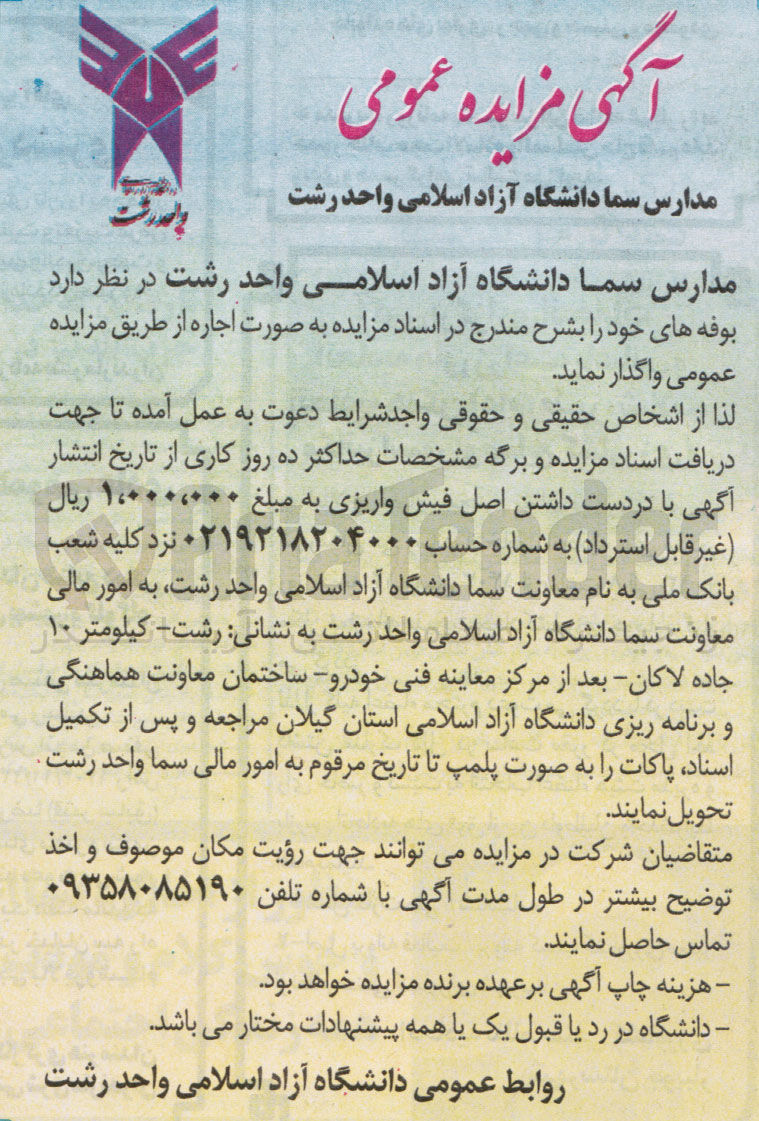 آگهی مزایده عمومی
واحد رشت
مدارس سما دانشگاه آزاد اسلامی واحد رشت
مدارس سما دانشگاه آزاد اسلامی واحد رشت در نظر دارد
بوفه های خود را بشرح مندرج در اسناد مزایده به صورت اجاره از طریق مزایده
عمومی واگذار نماید.
لذا از اشخاص حقیقی و حقوقی واجدشرایط دعوت به عمل آمده تا جهت
دریافت اسناد مزایده و برگه مشخصات حداکثر ده روز کاری از تاریخ انتشار
آگهی با دردست داشتن اصل فیش واریزی به مبلغ ۱,۰۰۰,۰۰۰ ریال
(غیرقابل استرداد) به شماره حساب ۰۲۱۹۲۱۸۲۰۴۰۰۰ نزد کلیه شعب
بانک ملی به نام معاونت سما دانشگاه آزاد اسلامی واحد رشت، به امور مالی
معاونت سما دانشگاه آزاد اسلامی واحد رشت به نشانی: رشت- کیلومتر ۱۰
جاده لاکان- بعد از مرکز معاینه فنی خودرو- ساختمان معاونت هماهنگی
و برنامه ریزی دانشگاه آزاد اسلامی استان گیلان مراجعه و پس از تکمیل
اسناد، پاکات را به صورت پلمپ تا تاریخ مرقوم به امور مالی سما واحد رشت
تحویل نمایند.
متقاضیان شرکت در مزایده می توانند جهت رؤیت مکان موصوف و اخذ
توضیح بیشتر در طول مدت آگهی با شماره تلفن ۰۹۳۵۸۰۸۵۱۹۰
تماس حاصل نمایند.
- هزینه چاپ آگهی برعهده برنده مزایده خواهد بود.
- دانشگاه در رد یا قبول یک یا همه پیشنهادات مختار می باشد.
روابط عمومی دانشگاه آزاد اسلامی واحد رشت